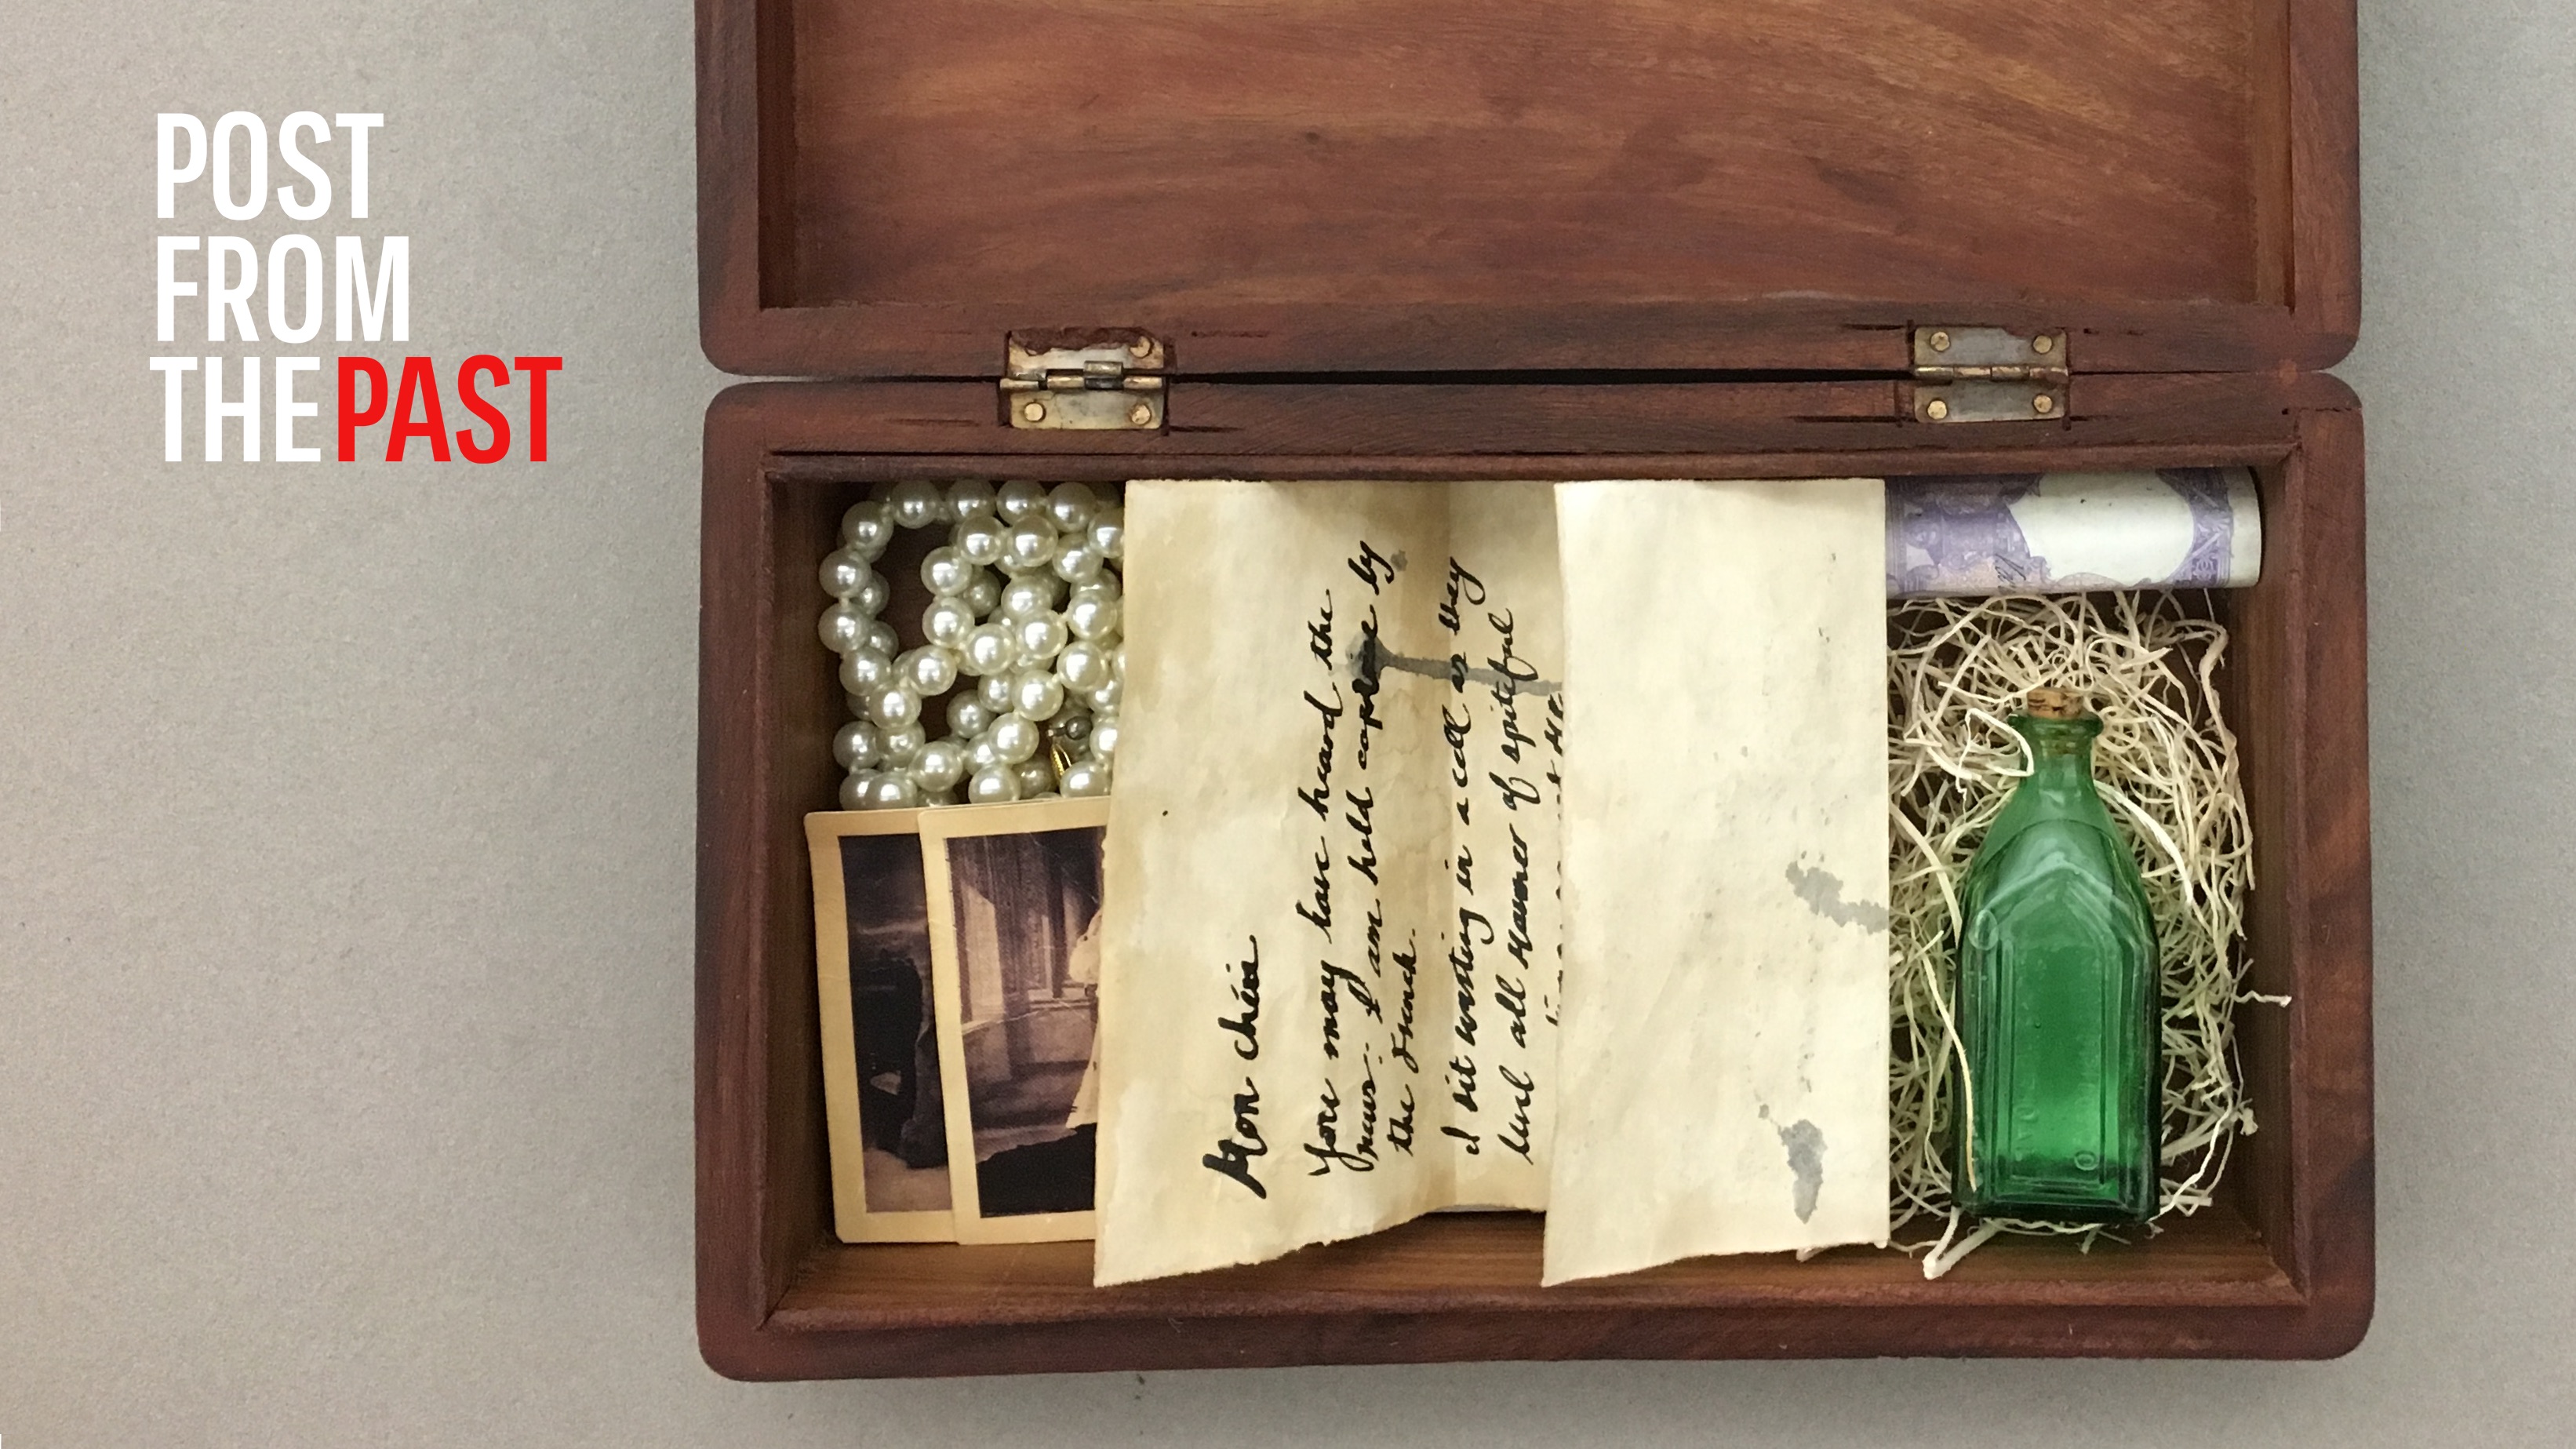 POST
FROM
THE PAST
Mon chérie
You may have heard the
news: I am held captive by
the French.
I sit wasting in a cell as they
hurl all manner of spiteful